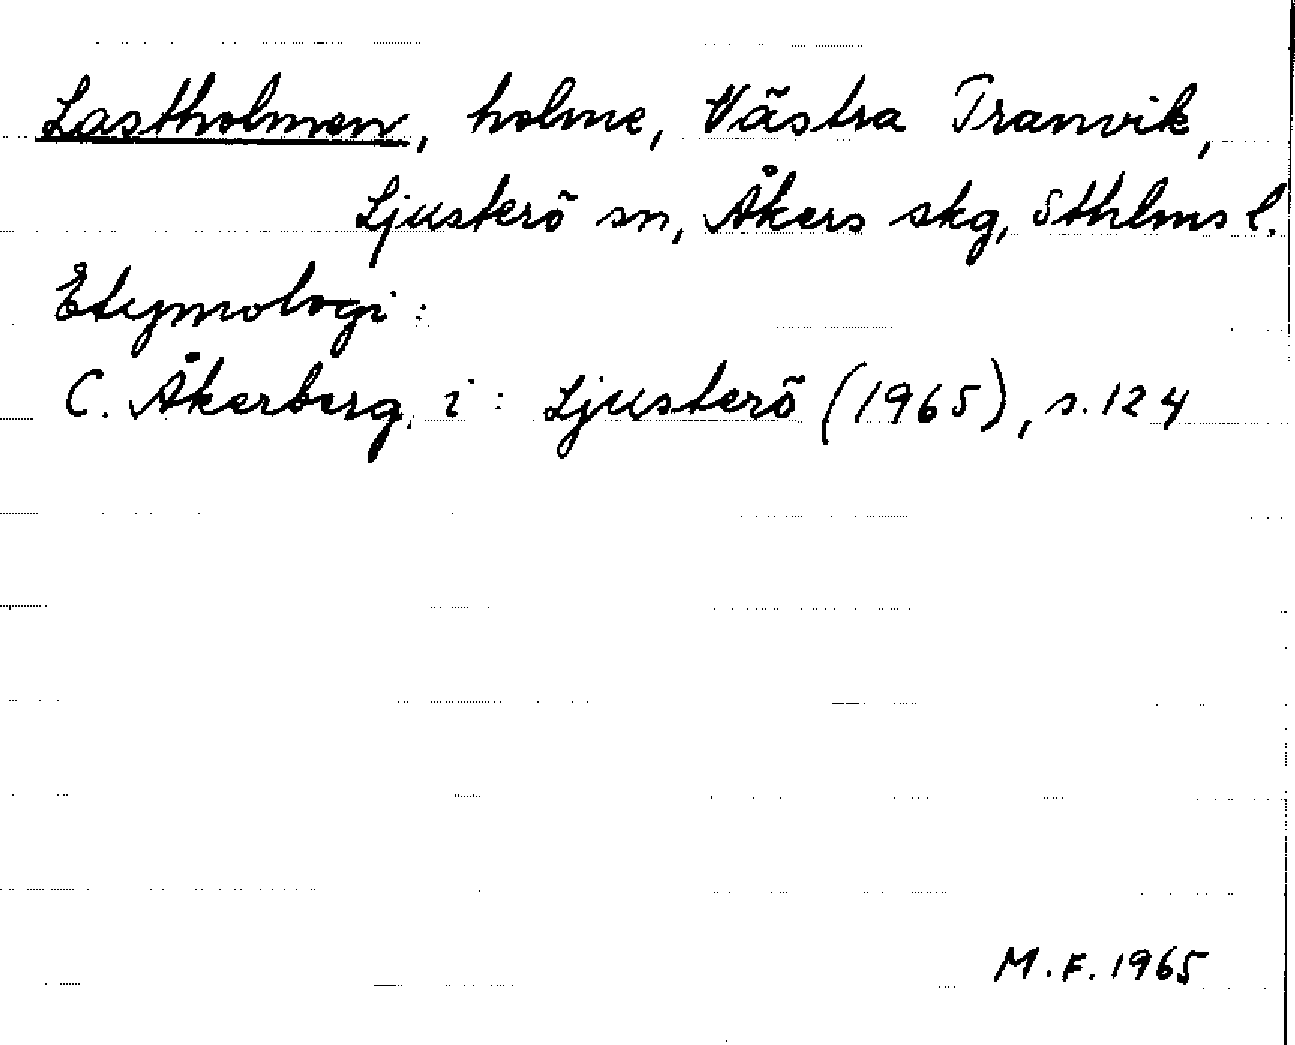 Lastholmen, holme, Västra Tranvik,
Ljusterö sn, Åkers skg, Sthlms l.
Etymologi:
C. Åkerberg, i: Ljusterö (1965), s. 124
M. F. 1965